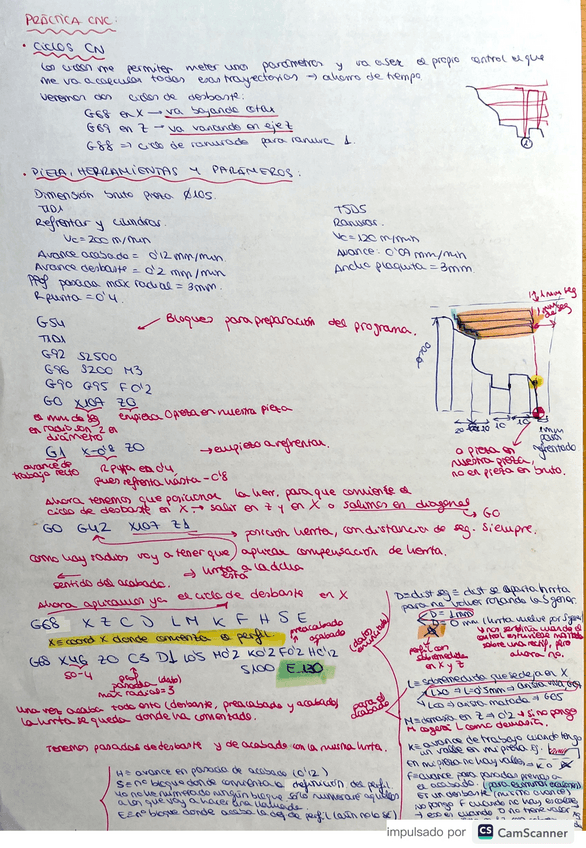 PRÁCTICA CNC:
• CICLOS CN
Los ciclos me permiten meter unos parámetros y va a ser el propio control el que
me va a calcular todas esas trayectorias → ahorro de tiempo
Veremos dos ciclos de desbaste:
G68 en X → va bajando cotas
G69 en Z → va variando en eje Z
G88 => ciclo de ranurado para ranura 1.
1
• PIEZA, HERRAMIENTAS Y PARÁMEROS:
Dimensión bruto pieza Ø105.
T1D1
Refrentar y cilindrar.
Vc = 200 m/min
Avance acabado = 0'12 mm/min
Avance desbaste = 0'2 mm/min
Prof pasada máx radial = 3mm.
R punta = 0'4.
T5D5
Ranurar.
Vc = 120 m/min
Avance: 0'09 mm/min
Ancho plaquita = 3mm
G54
Bloques para preparación del programa.
T1D1
G92 S2500
G96 S200 M3
G90 G95 F0'2
G0 X107 Z0
es mm de seg en radio son 2 en diámetro
empieza 0 pieza en nuestra pieza
G1 X-0'8 Z0 → empiezo a refrentar.
avance de trabajo recto
R punta es 0'4 pues refrenta hasta -0'8
Ø100
20 10 10 10
1mm seg
1mm para refrentado
0 pieza en nuestra pieza, no es pieza en bruto.
Ahora tenemos que posicionar la herr. para que comience el
ciclo de desbaste en X → salir en Z y en X o salimos en diagonal
G0
G0 G42 X107 Z1
posición herrta, con distancia de seg. siempre.
como hay radios voy a tener que aplicar compensación de herrta.
sentido del acabado. => herrta a la dcha está
Ahora aplicamos ya el ciclo de desbaste en X
G68 X Z C D L M K F H S E
preacabado y acabado
X = coord X donde comienza el perfil
(datos enunciado)
G68 X46 Z0 C3 D1 L0'5 M0'2 K0'2 F0'2 H0'12
50-4
prof pasada (desb) máx radial = 3
S100 E120
para el acabado
una vez acaba todo esto (desbaste, preacabado y acabado)
la herrta se queda donde ha comentado.
Tenemos pasadas de desbaste y de acabado con la misma hrta.
H = avance en pasada de acabado (0'12)
S = nº bloque donde comienza la definición del perfil
Yo no he numerado ningún bloque sólo numeraré aquellos
a los que voy a hacer una llamada.
E = nº bloque donde acaba la def de perfil (aún no lo sé)
D = dist seg = dist se aparta hrrta
para no volver rozando la S gener
D = 1mm
0 mm (hrrta vuelve por S gener)
perfil con sobremedida en X y Z
L = sobremedida que se deja en X
M = demasía en Z → 0'2 → si no pongo
M cogerá L como demasía.
K = avance de trabajo cuando tengo
un valle en mi pieza ej.
en mi pieza no hay valles → K0
F = avance para pasadas previas a
el acabado. (para eliminar escalones)
no pongo F cuando no hay escalones
impulsado por CS CamScanner